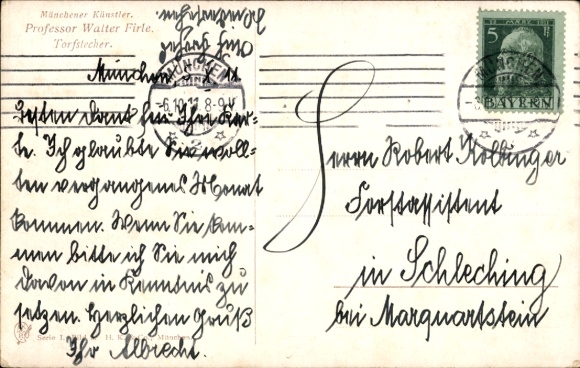 Münchener Künstler.
Professor Walter Firle.
Torfstecher.
München
Besten Dank für Ihre Kar-
te. Ich glaubte Sie woll-
ten vergangenes Monat
kommen. Wenn Sie kom-
men bitte ich Sie mich
davon in Kenntnis zu
setzen. Herzlichen Gruß
Ihr Albrecht.
Serie
MÜNCHEN
-6.10.11. 8-9 V.
* 2 *
11. MÄRZ 1911
5 Pf
BAYERN
Herrn Robert Kolbinger
Forstassistent
in Schleching
bei Marquartstein